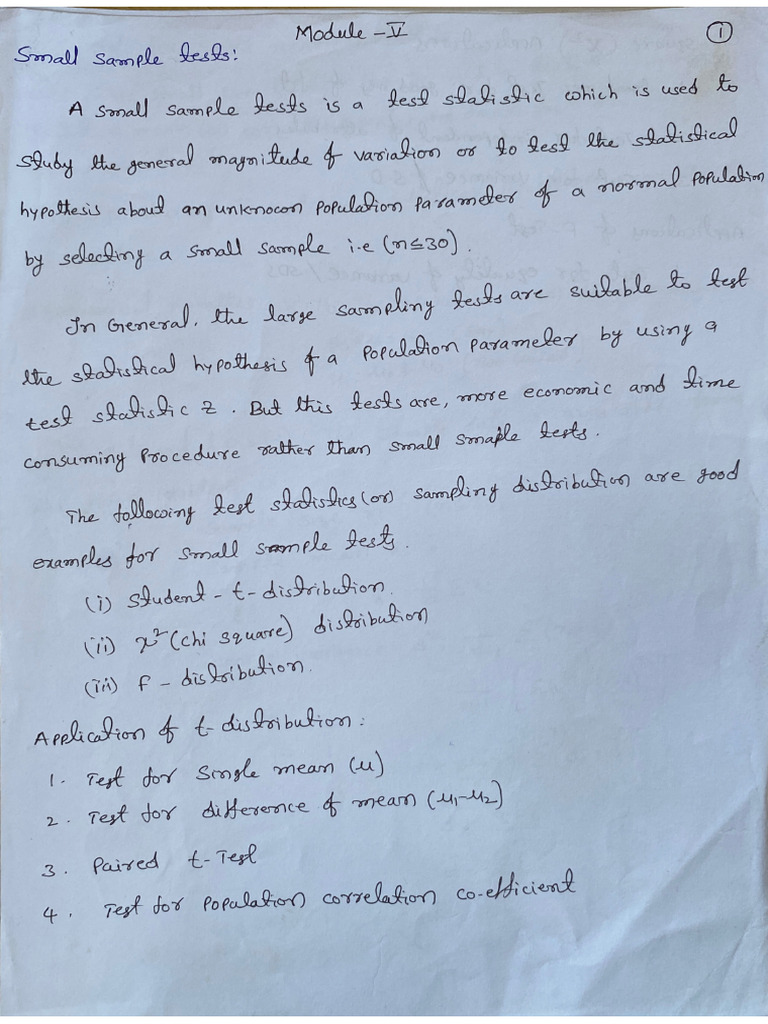 Module - V
①
Small Sample tests:
A small sample tests is a test statistic which is used to
study the general magnitude of variation or to test the statistical
hypothesis about an unknown population parameter of a normal population
by selecting a small sample i.e (n≤30).
In General, the large sampling tests are suitable to test
the statistical hypothesis of a population parameter by using a
test statistic z. But this tests are, more economic and time
consuming Procedure rather than small smaple tests.
The following test statistics (or) sampling distribution are good
examples for small sample tests.
(i) student - t - distribution.
(ii) x² (chi square) distribution
(iii) f - distribution.
Application of t- distribution:
1. Test for Single mean (μ)
2. Test for difference of mean (μ1-μ2)
3. Paired t-Test
4. Test for population correlation co-efficient